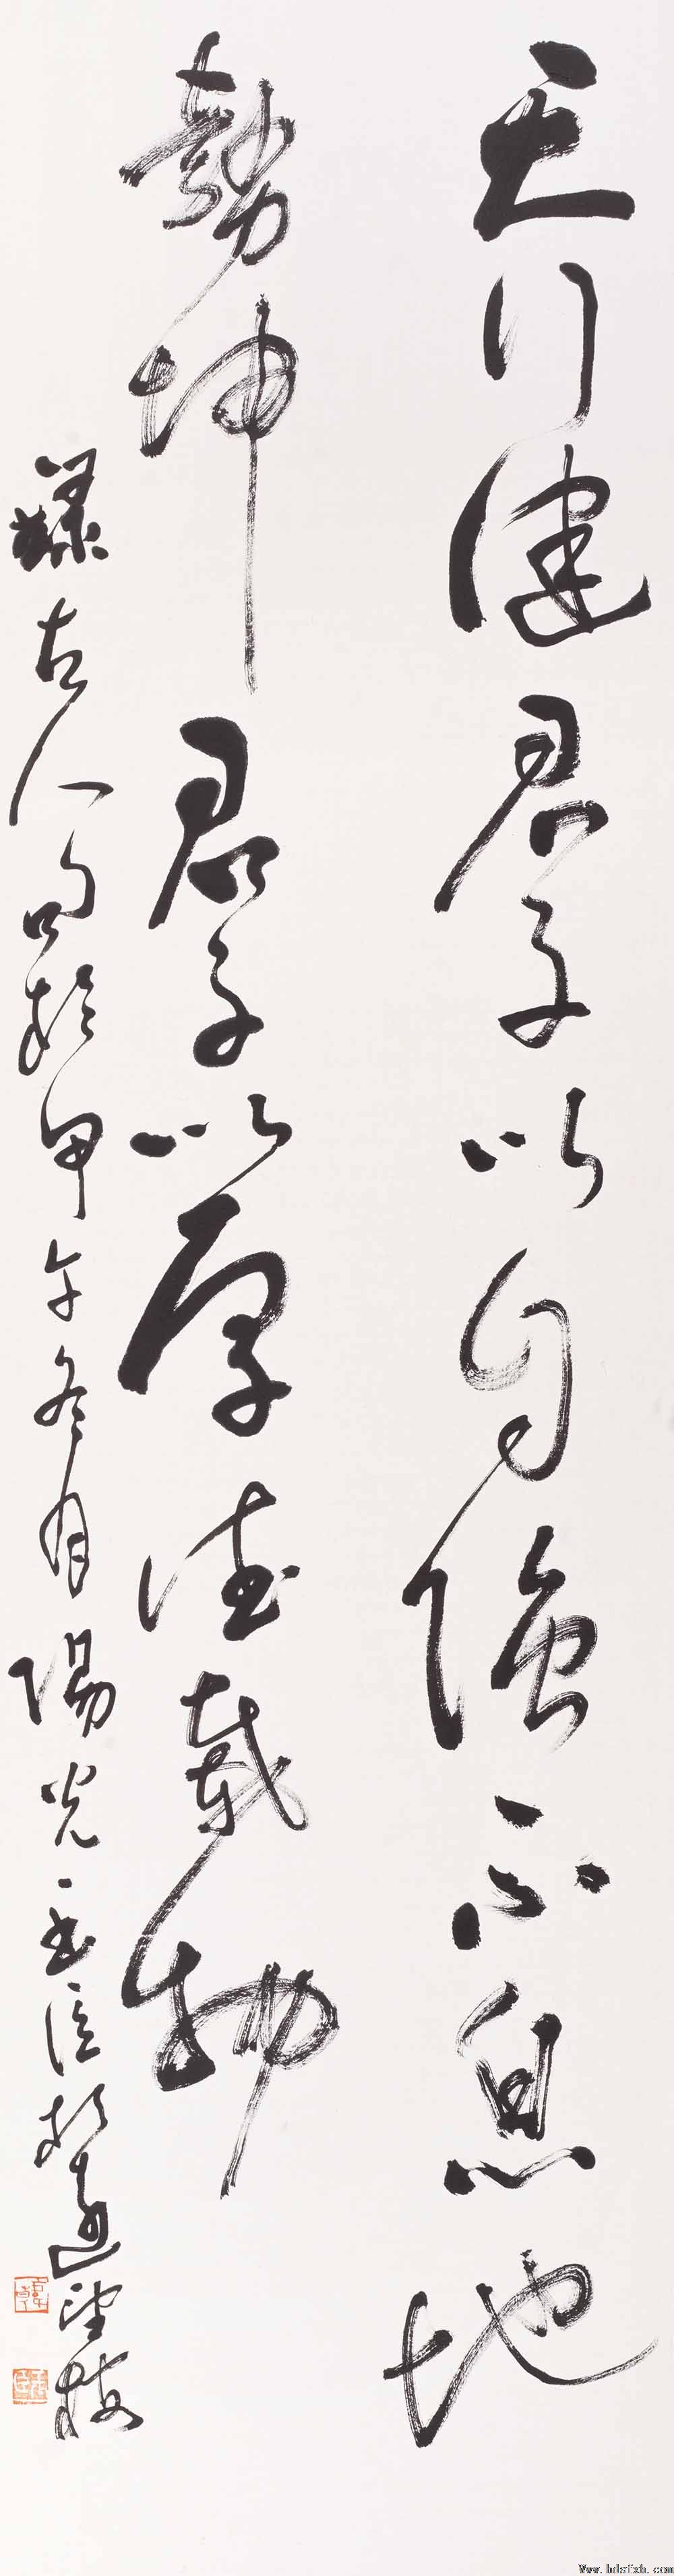 天行健君子以自強不息地
勢坤君子以厚德載物
錄古人句於甲午冬月陽光玉信於適望梅
www.bdsfxh.com